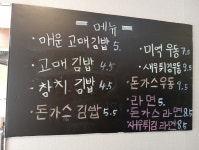 메뉴
· 매운 고매김밥 5.
· 고매김밥 4.5
· 참치김밥 4.5
· 돈가스김밥 5.5
· 미역우동 7.0
· 새우튀김우동 9.5
· 돈가스우동 9.5
· 라면 5.
· 돈가스라면 8.5
· 새우튀김라면 8.5